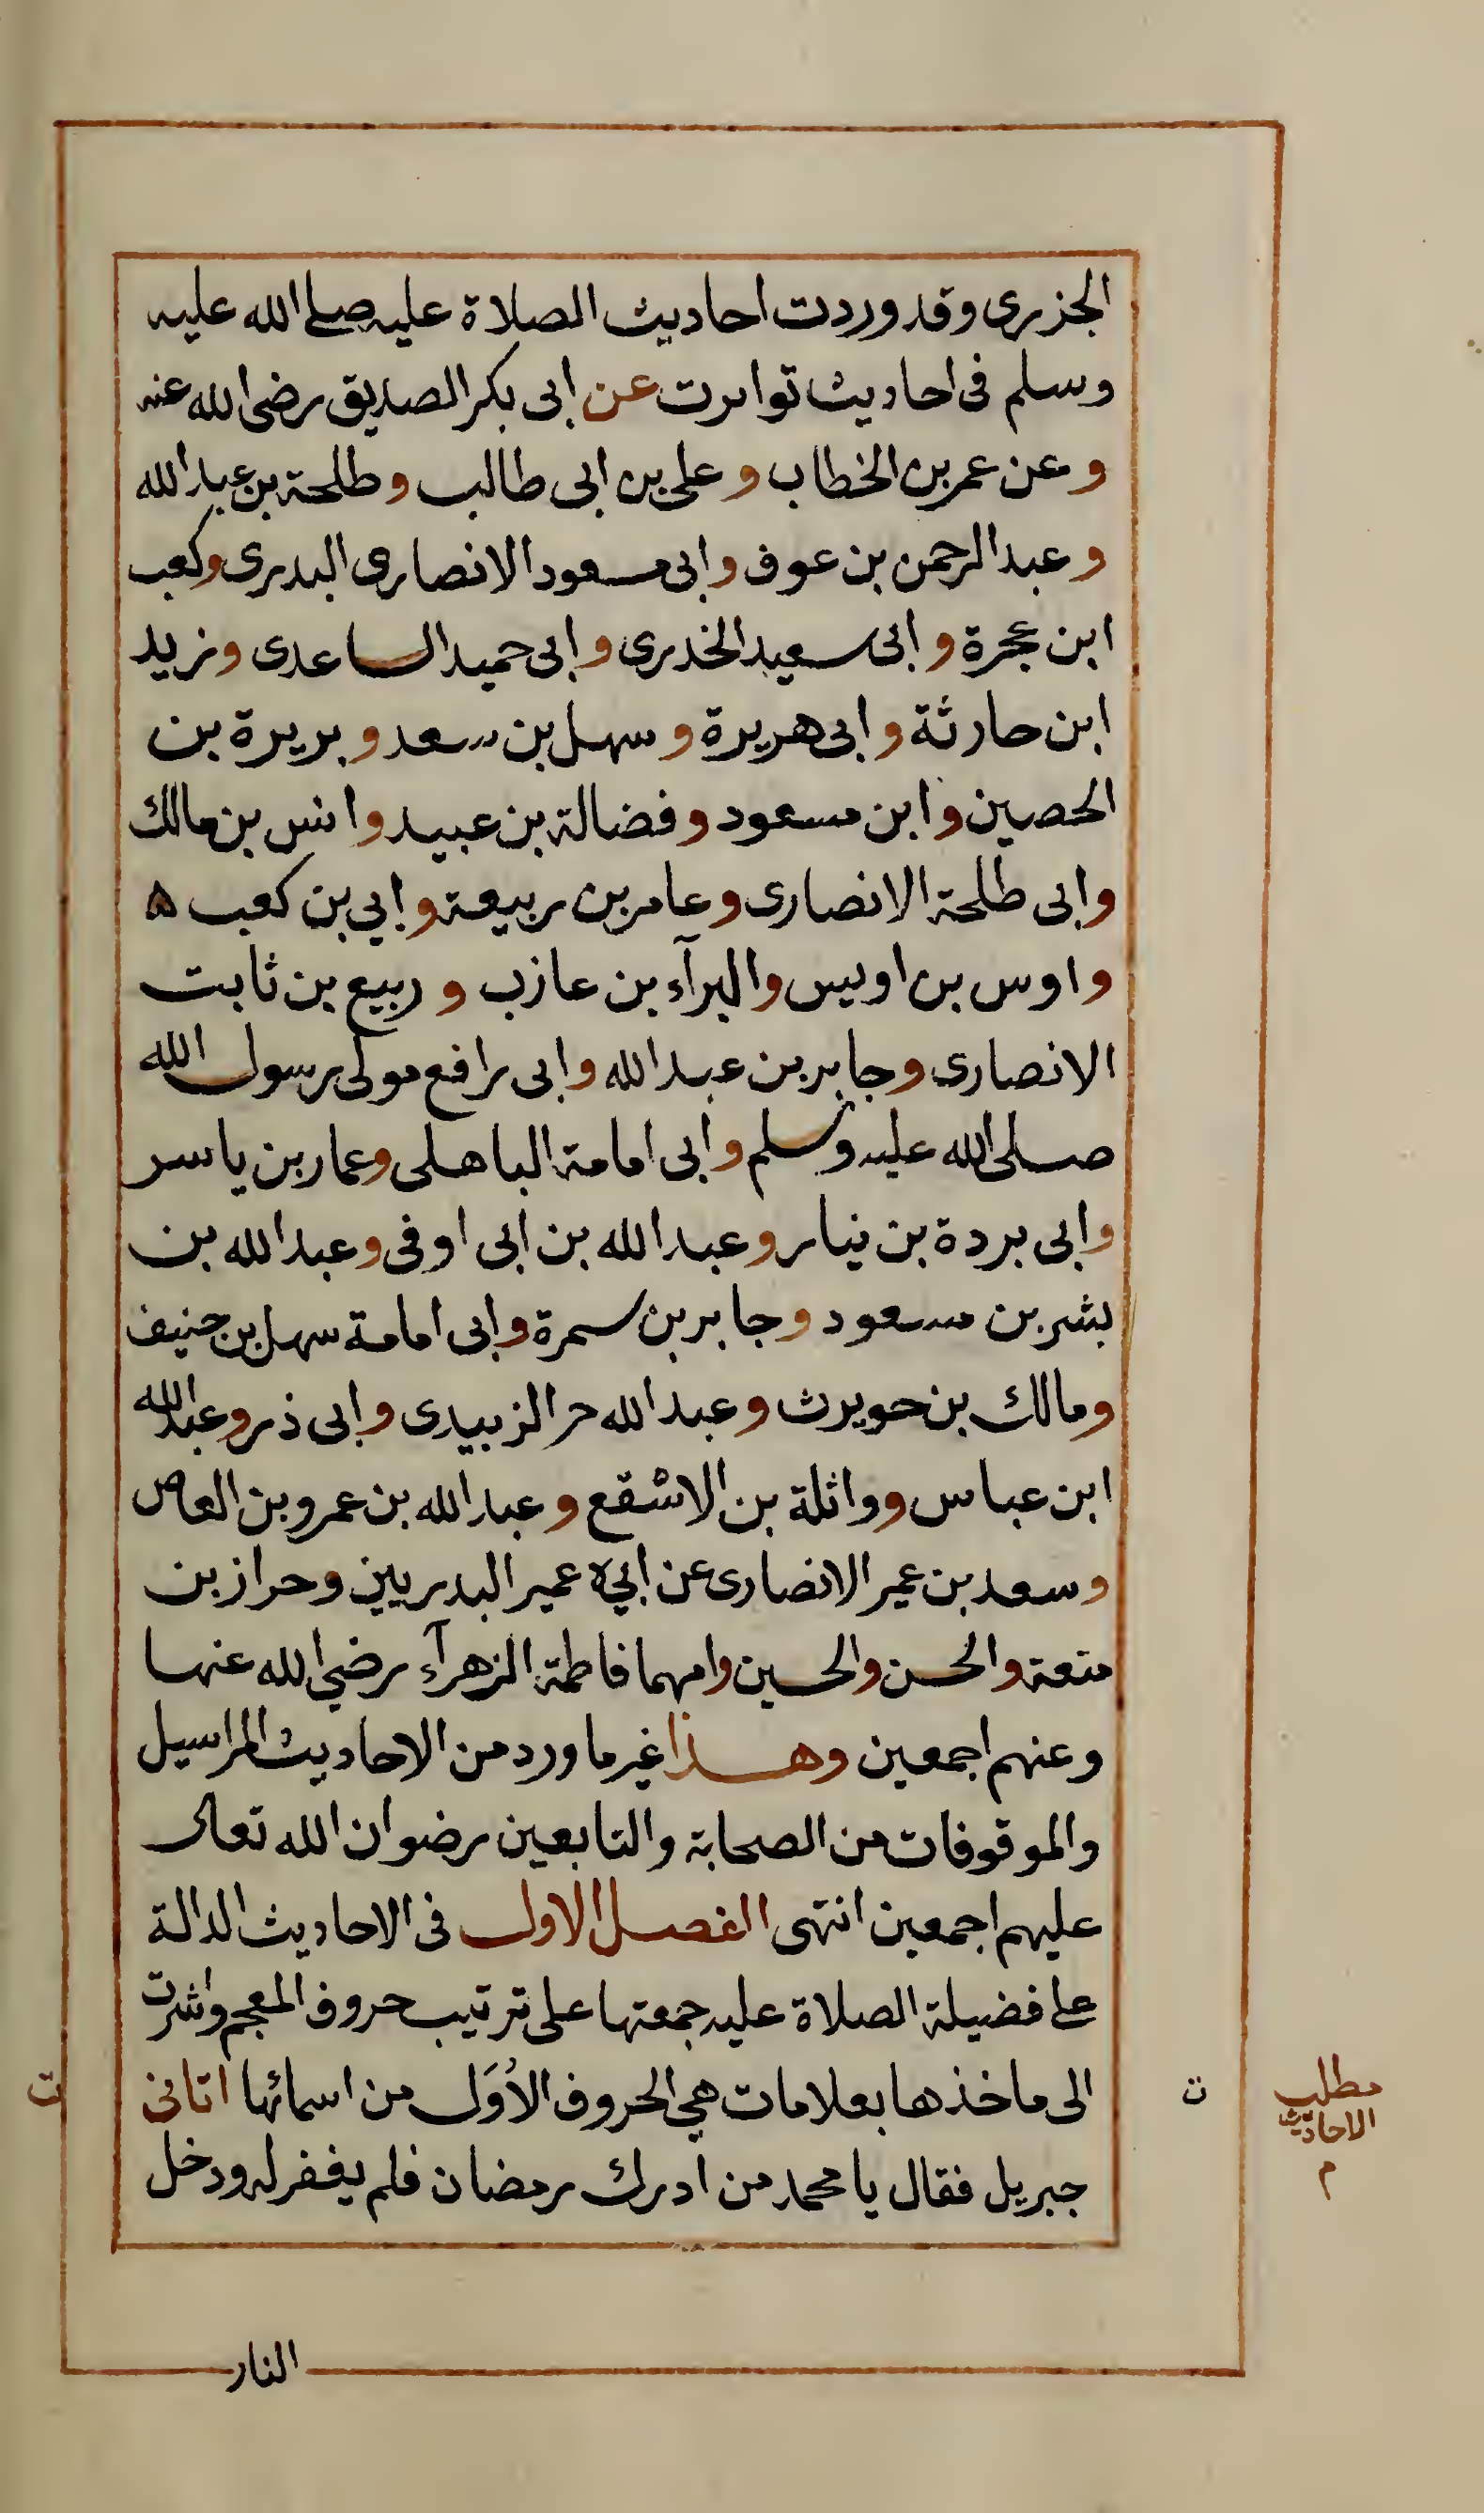 الجزرى وقد وردت احاديث الصلاة عليه صلى الله عليه
وسلم فى احاديث تواترت عن ابى بكر الصديق رضى الله عنه
وعن عمر بن الخطاب وعلى بن ابى طالب وطلحة بن عبد الله
وعبد الرحمن بن عوف وابى مسعود الانصارى البدرى وكعب
ابن عجرة وابى سعيد الخدرى وابى حميد الساعدى وزيد
ابن حارثة وابى هريرة وسهل بن سعد وبريرة بن
الحصين وابن مسعود وفضالة بن عبيد وانس بن مالك
وابى طلحة الانصارى وعامر بن ربيعة وابي بن كعب ه
واوس بن اويس والبرآء بن عازب وربيع بن ثابت
الانصارى وجابر بن عبد الله وابى رافع مولى رسول الله
صلى الله عليه وسلم وابى امامة الباهلى وعمار بن ياسر
وابى بردة بن نيار وعبد الله بن ابى اوفى وعبد الله بن
بشر بن مسعود وجابر بن سمرة وابى امامة سهل بن حنيف
ومالك بن حويرث وعبد الله حر الزبيدى وابى ذر وعبد الله
ابن عباس وواثلة بن الاشقع وعبد الله بن عمرو بن العاص
وسعد بن عمير الانصارى عن ابيه عمير البدريين وحراز بن
متعة والحسن والحسين وامهما فاطمة الزهرآء رضي الله عنها
وعنهم اجمعين وهذا غير ما ورد من الاحاديث المراسيل
والموقوفات من الصحابة والتابعين رضوان الله تعالى
عليهم اجمعين انتهى الفصل الاول فى الاحاديث الدالة
على فضيلة الصلاة عليه جمعتها على ترتيب حروف المعجم واشرت
الى ماخذها بعلامات هي الحروف الاُوَل من اسمائها اتانى
جبريل فقال يا محمد من ادرك رمضان فلم يغفر له ودخل
النار
مطلب
الاحاديث
م
ت
ت